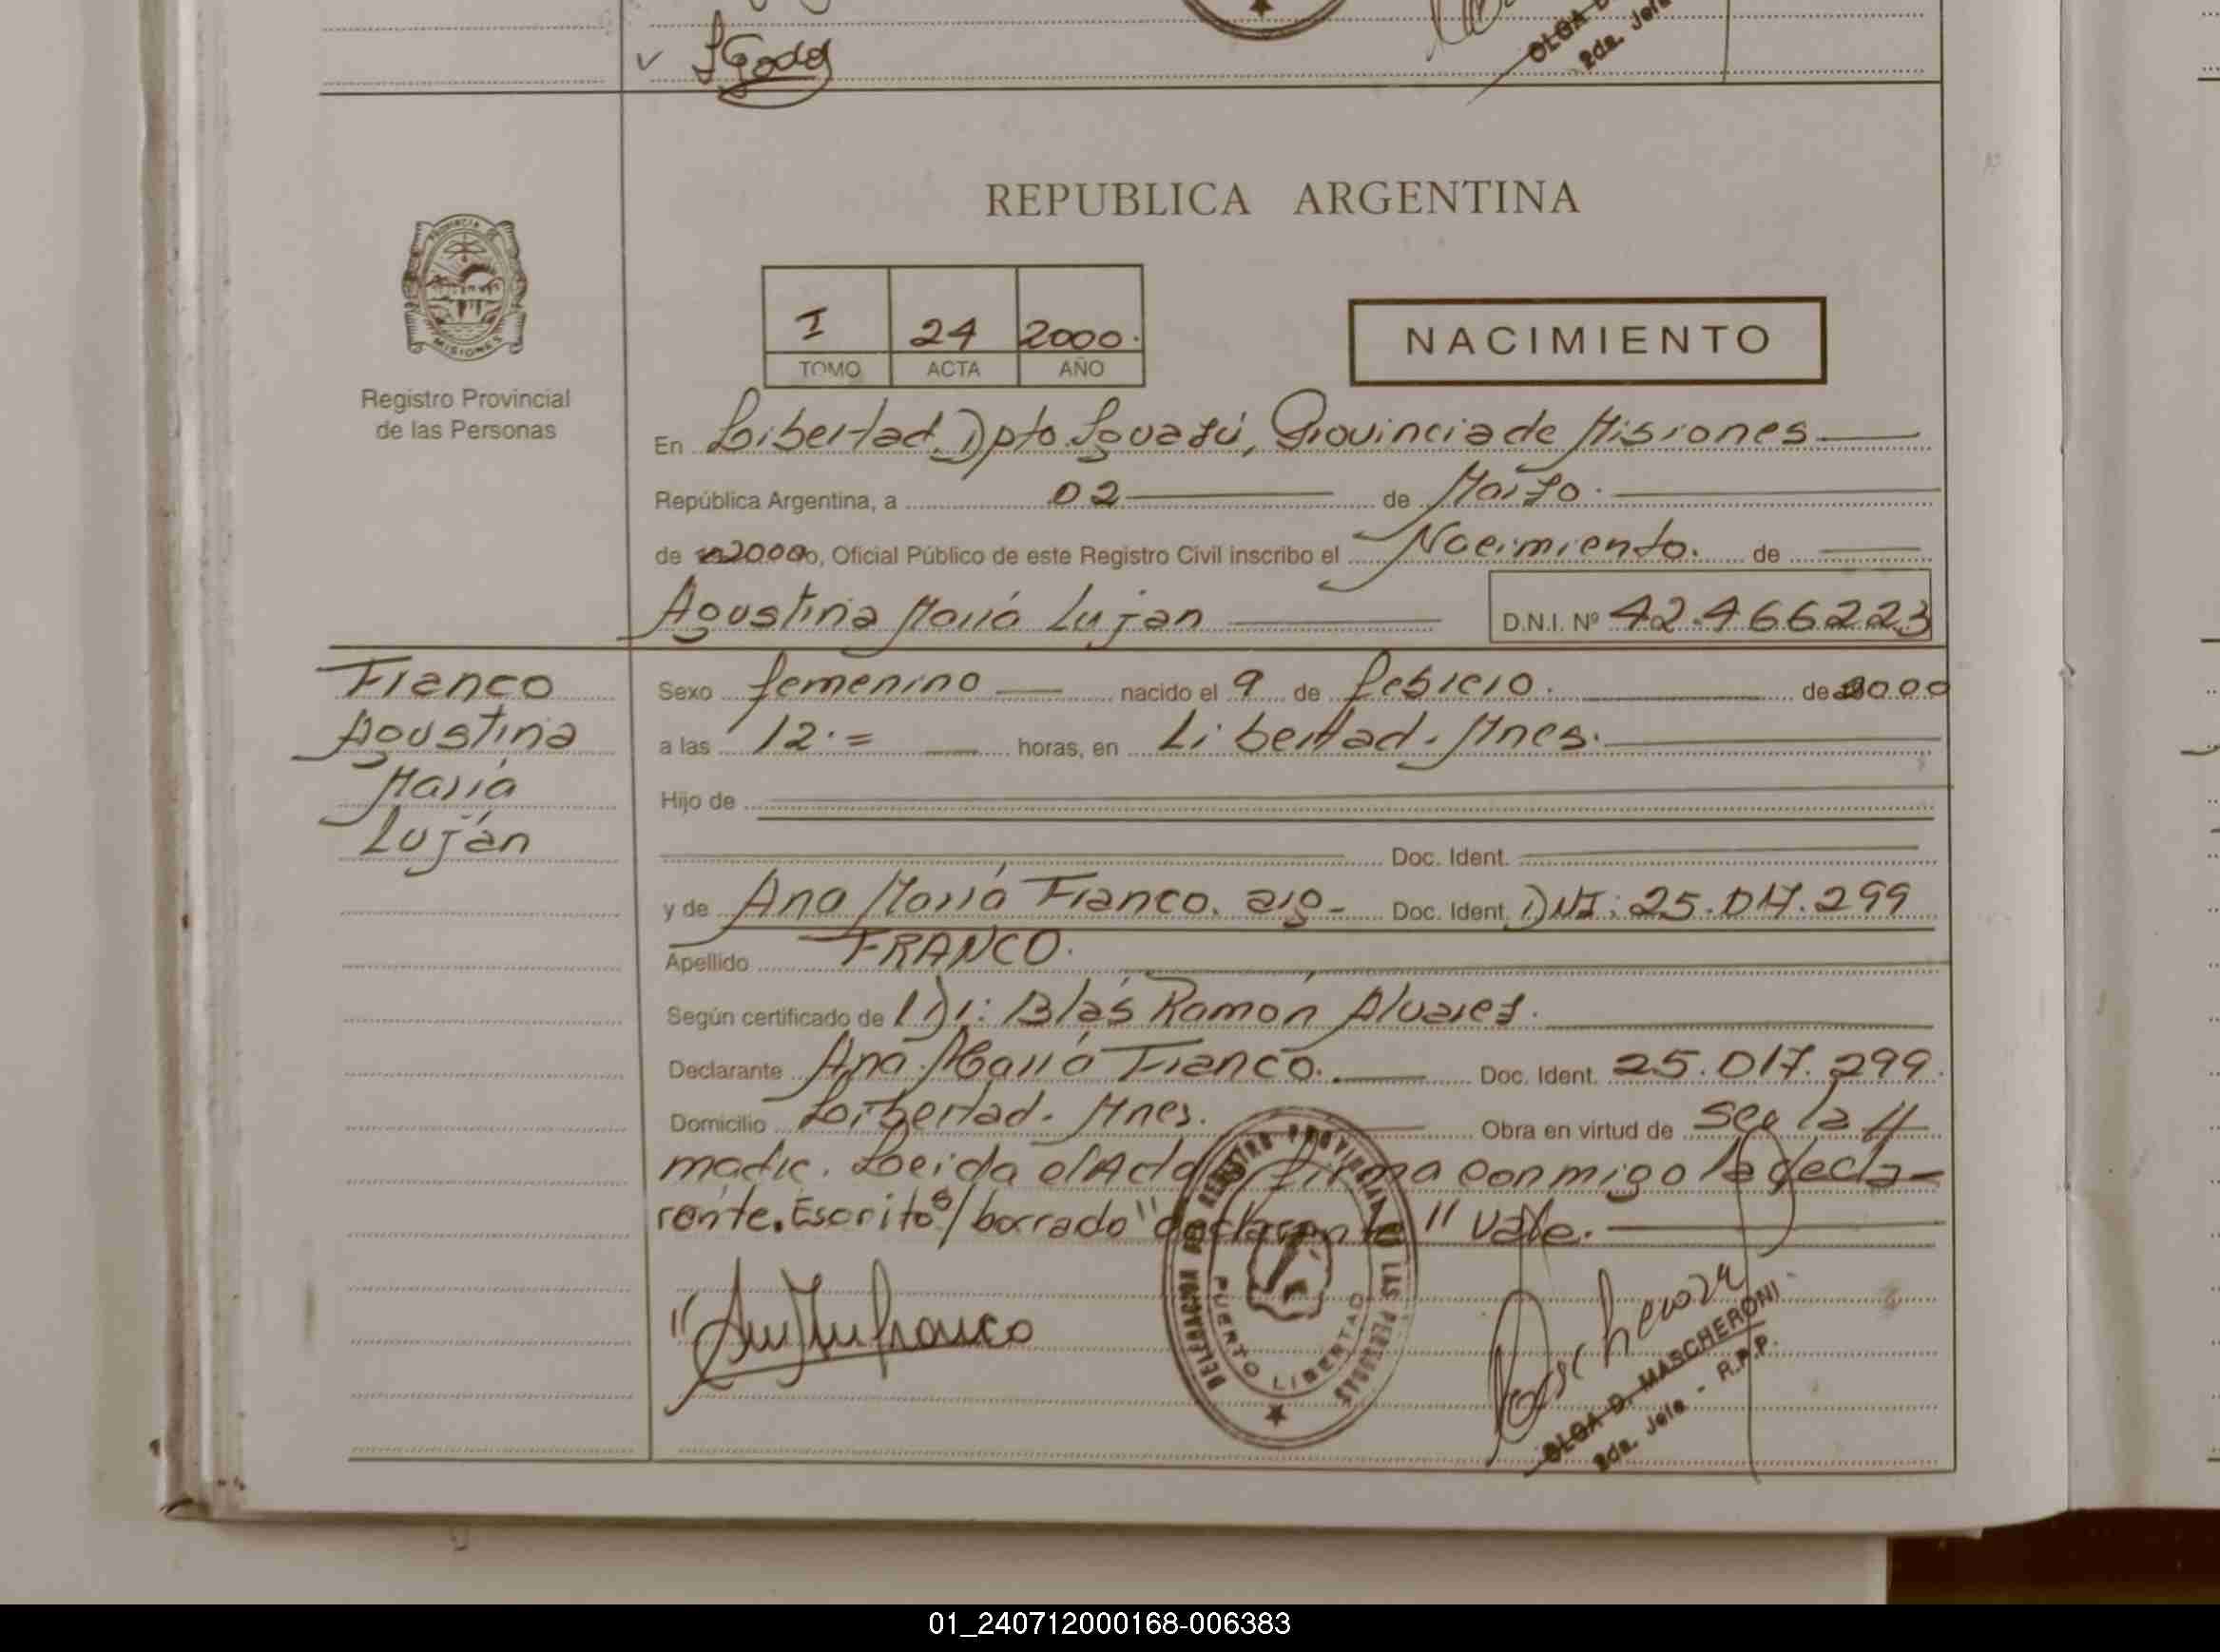 SGoda
OLGA D.
2da. Jefa
PROVINCIA DE
MISIONES
Registro Provincial
de las Personas
REPUBLICA ARGENTINA
I 24 2000.
TOMO ACTA AÑO
NACIMIENTO
En Libertad, Dpto. Iguazú, Provincia de Misiones
República Argentina, a 02 de Marzo.
de 2000 o, Oficial Público de este Registro Civil inscribo el Nacimiento. de
Agustina María Lujan D.N.I. Nº 42.466223
Franco
Agustina
María
Luján
Sexo femenino nacido el 9 de febrero. de 2000
a las 12.= horas, en Libertad. Mnes.
Hijo de
Doc. Ident.
y de Ana María Franco. arg- Doc. Ident. DNI: 25.017.299
Apellido FRANCO.
Según certificado de Dr: Blás Ramón Alvarez.
Declarante Ana María Franco. Doc. Ident. 25.017.299.
Domicilio Libertad. Mnes. Obra en virtud de ser la //
madre. Leída el Acta firma conmigo la decla-
rante. Escrito s/ borrado "declarante" vale.
Franco
DELEGACION DEL REGISTRO PROVINCIAL DE LAS PERSONAS
PUERTO LIBERTAD
OLGA D. MASCHERONI
2da. Jefa - R.P.P.
01_240712000168-006383